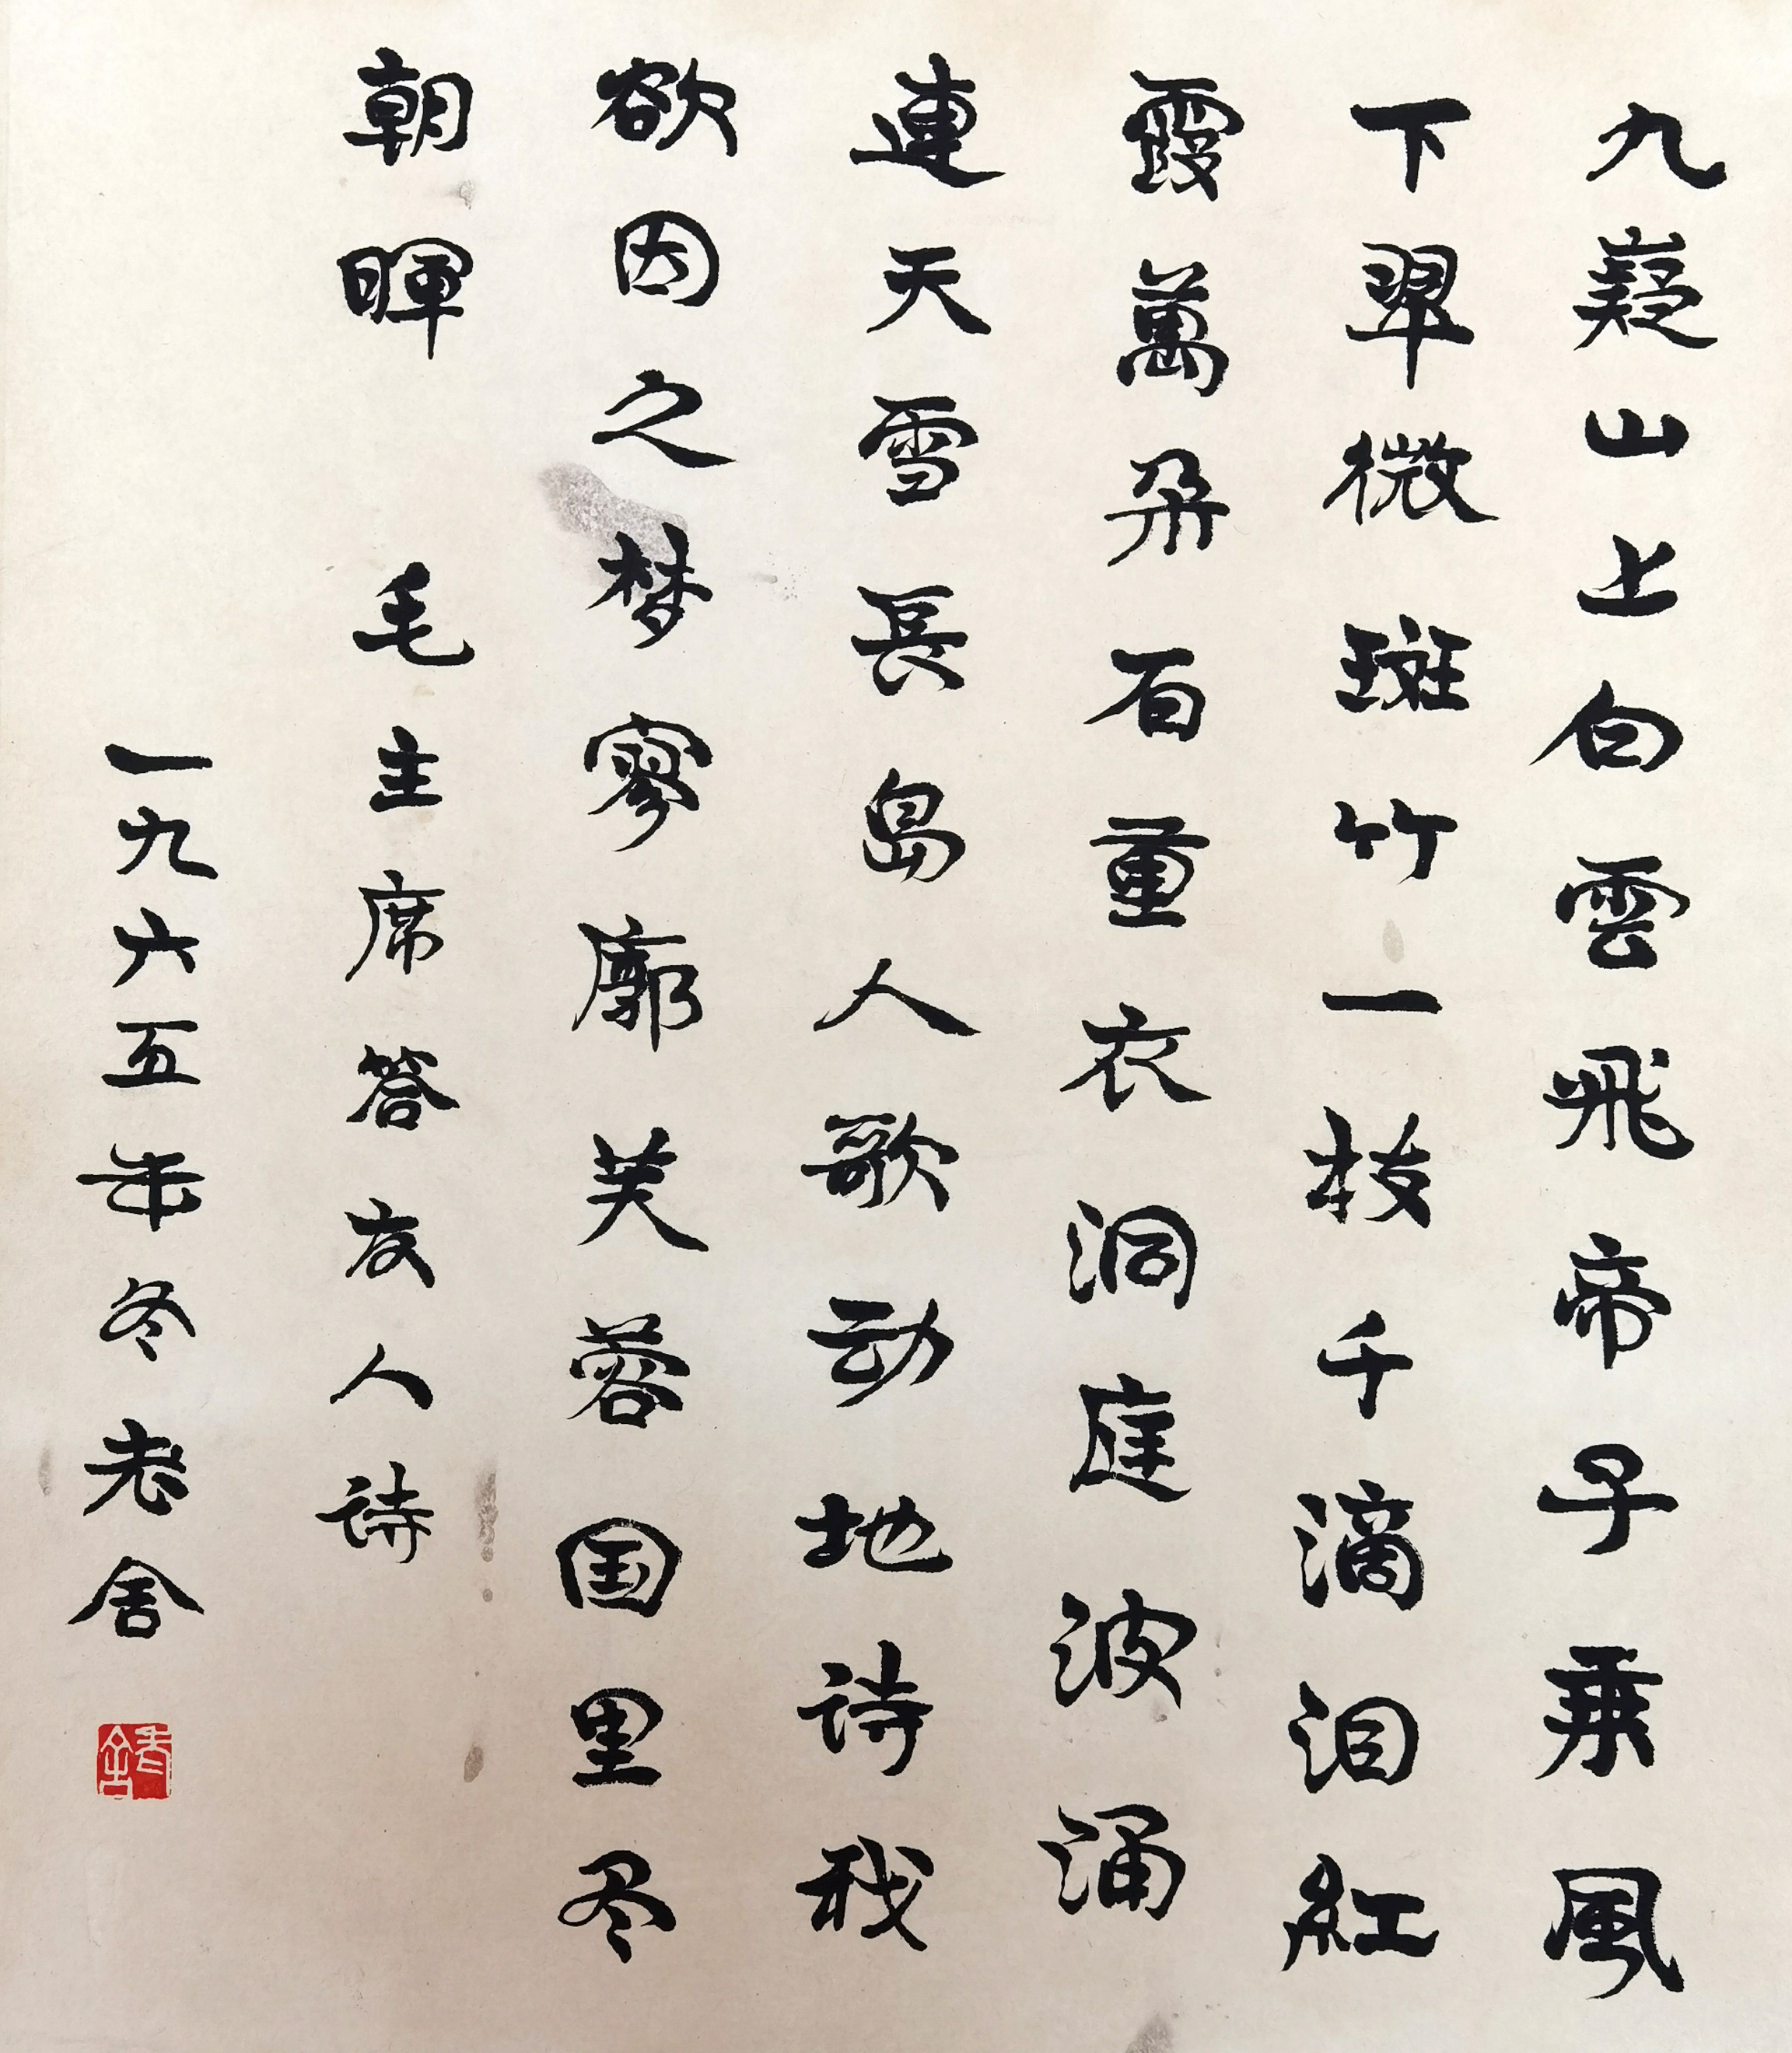 九嶷山上白雲飛帝子乗風
下翠微斑竹一枝千滴泪紅
霞萬朵百重衣洞庭波涌
連天雪長島人歌动地诗我
欲因之梦寥廓芙蓉国里尽
朝暉 毛主席答友人诗
一九六五年冬老舍
老舍